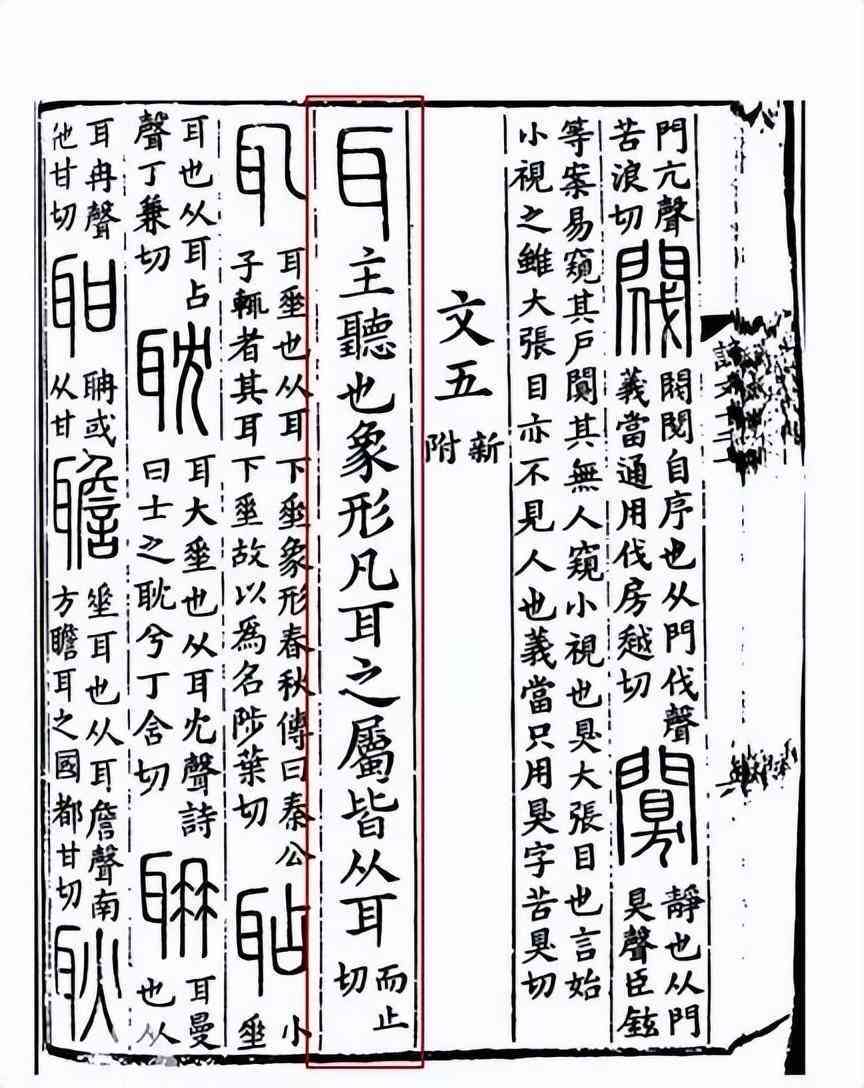 門亢聲
苦浪切
閥
閥閱自序也从門伐聲
義當通用伐房越切
闃
靜也从門
狊聲臣鉉
等案易窺其戶闃其無人窺小視也狊大張目也言始
小視之雖大張目亦不見人也義當只用狊字苦狊切
文五
新
附
耳
主聽也象形凡耳之屬皆从耳
而止
切
耴
耳垂也从耳下垂象形春秋傳曰秦公
子輒者其耳下垂故以爲名陟葉切
䩞
小
垂
耳也从耳占
聲丁兼切
耽
耳大垂也从耳冘聲詩
曰士之耽兮丁含切
耼
耳曼
也从
耳冉聲
他甘切
𦕐
聃或
从甘
聸
垂耳也从耳詹聲南
方瞻耳之國都甘切
耿